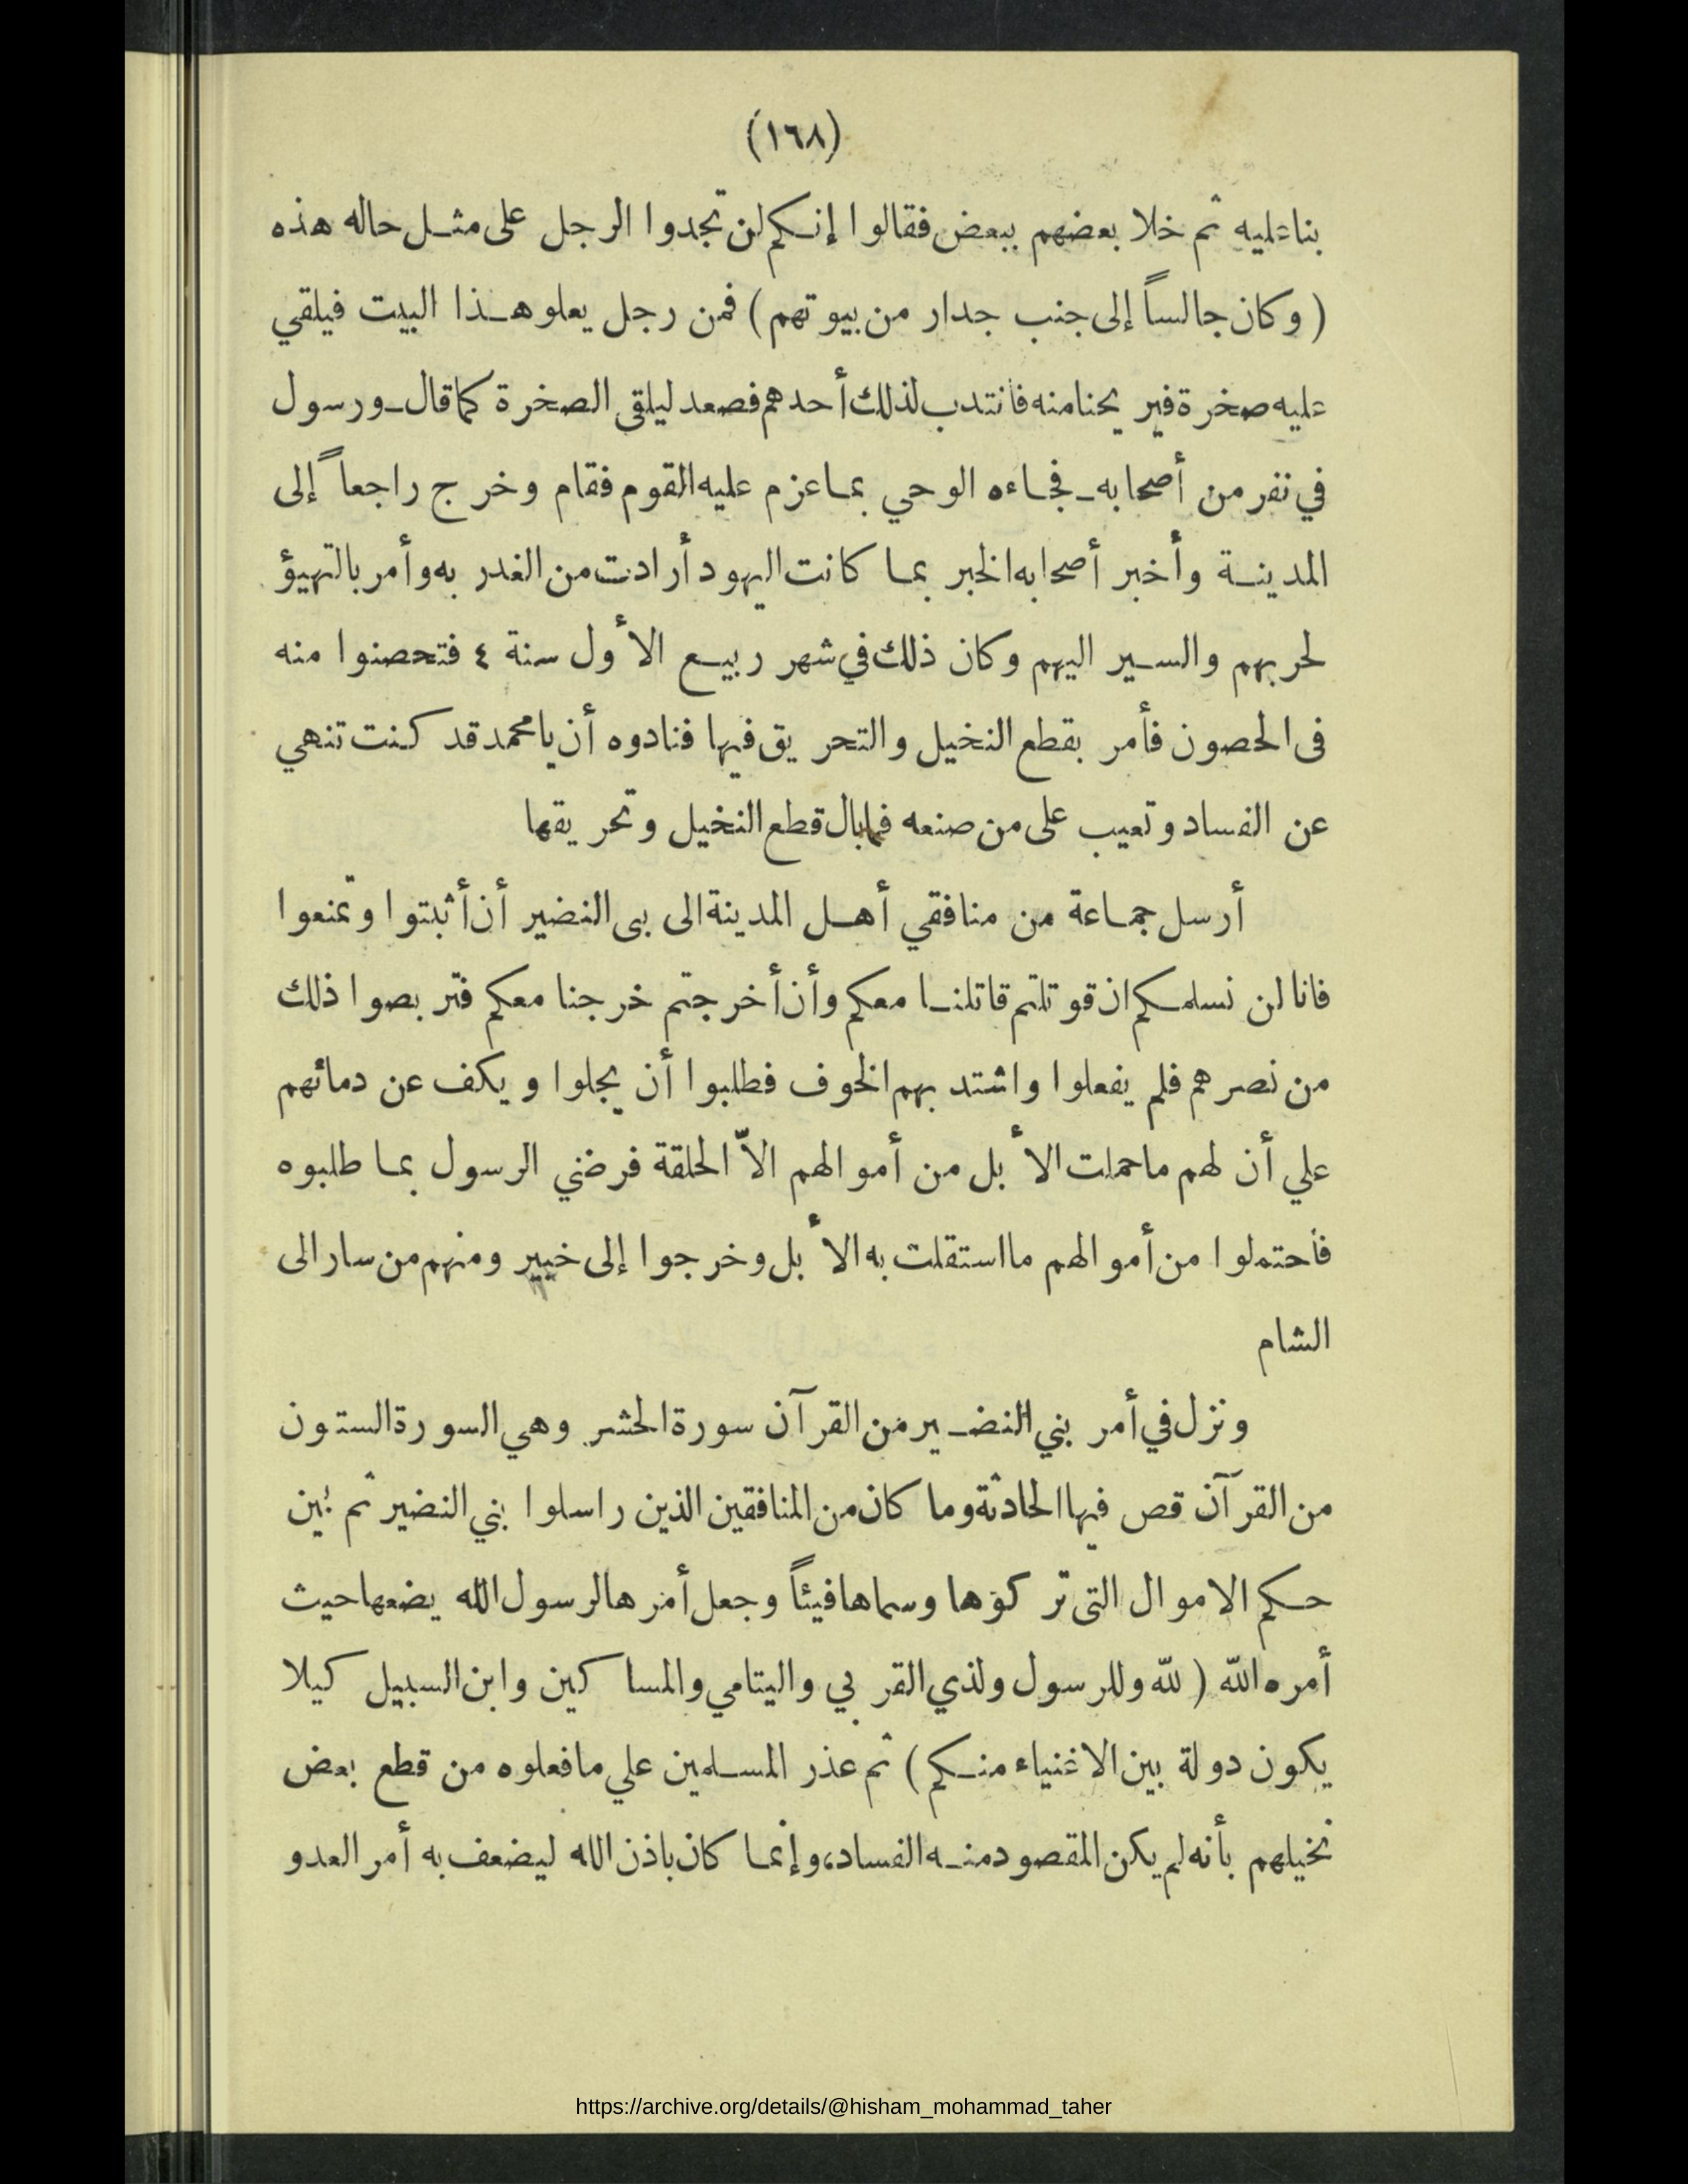 (١٦٨)
بنا عليه ثم خلا بعضهم ببعض فقالوا إنكم لن تجدوا الرجل على مثل حاله هذه
(وكان جالساً إلى جنب جدار من بيوتهم) فمن رجل يعلو هذا البيت فيلقي
عليه صخرة فيريحنا منه فانتدب لذلك أحدهم فصعد ليلقى الصخرة كما قال ـ ورسول
في نفر من أصحابه ـ فجاءه الوحي بما عزم عليه القوم فقام وخرج راجعاً إلى
المدينة وأخبر أصحابه الخبر بما كانت اليهود أرادت من الغدر به وأمر بالتهيؤ
لحربهم والسير اليهم وكان ذلك في شهر ربيع الأول سنة ٤ فتحصنوا منه
فى الحصون فأمر بقطع النخيل والتحريق فيها فنادوه أن يا محمد قد كنت تنهي
عن الفساد وتعيب على من صنعه فما بال قطع النخيل وتحريقها
أرسل جماعة من منافقي أهل المدينة الى بى النضير أن أثبتوا وتمنعوا
فانا لن نسلمكم ان قوتلتم قاتلنا معكم وأن أخرجتم خرجنا معكم فتربصوا ذلك
من نصرهم فلم يفعلوا واشتد بهم الخوف فطلبوا أن يجلوا ويكف عن دمائهم
علي أن لهم ما حملت الأبل من أموالهم الاّ الحلقة فرضي الرسول بما طلبوه
فأحتملوا من أموالهم ما استقلت به الأبل وخرجوا إلى خيبر ومنهم من سار الى
الشام
ونزل في أمر بني النضير من القرآن سورة الحشر وهي السورة الستون
من القرآن قص فيها الحادثة وما كان من المنافقين الذين راسلوا بني النضير ثم بين
حكم الاموال التى تركوها وسماها فيئاً وجعل أمرها لرسول الله يضعها حيث
أمره الله (لله وللرسول ولذي القربي واليتامي والمساكين وابن السبيل كيلا
يكون دولة بين الاغنياء منكم) ثم عذر المسلمين علي ما فعلوه من قطع بعض
نخيلهم بأنه لم يكن المقصود منه الفساد، وإنما كان باذن الله ليضعف به أمر العدو
https://archive.org/details/@hisham_mohammad_taher